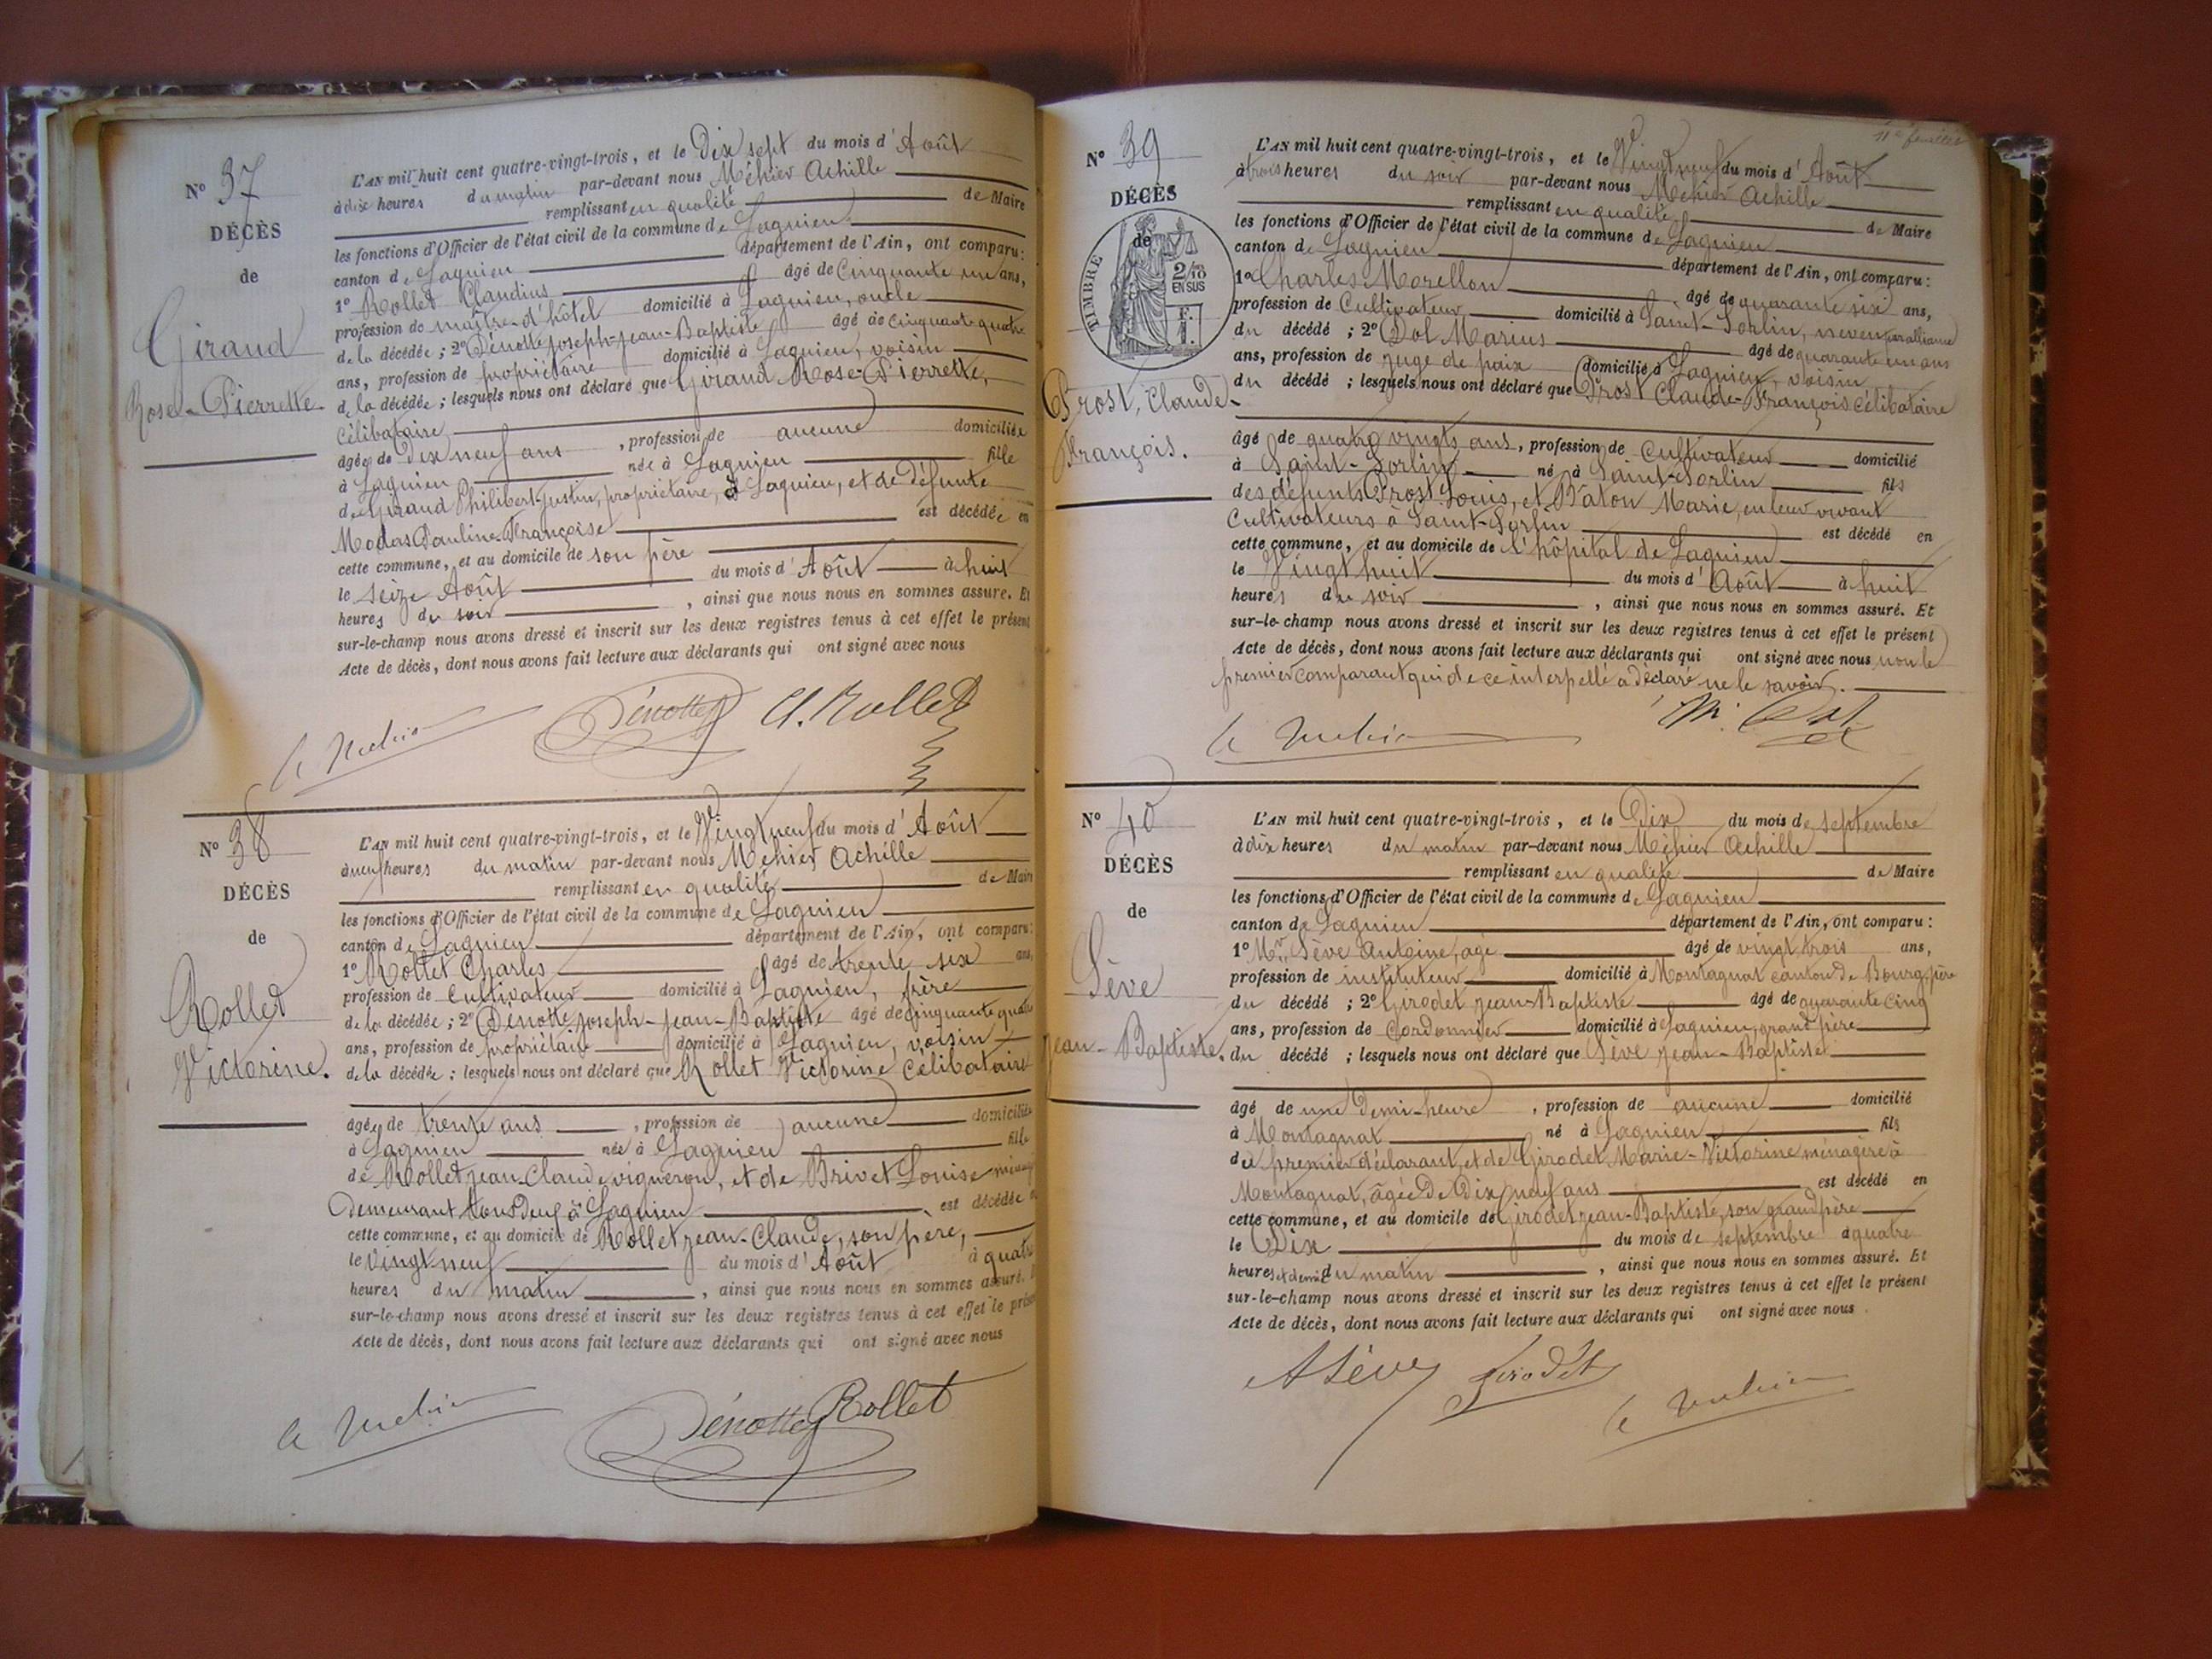 N° 37
DÉCÈS
de
Giraud
Rose-Pierrette
L'AN mil huit cent quatre-vingt-trois, et le Dix sept du mois d'Août
à dix heures du matin par-devant nous Méhier Achille
remplissant en qualité de Maire
les fonctions d'Officier de l'état civil de la commune de Lagnieu
canton de Lagnieu département de l'Ain, ont comparu:
1° Rollet Claudius âgé de Cinquante un ans,
profession de maître-d'hôtel domicilié à Lagnieu, oncle
de la décédée; 2° Dénotte Joseph-Jean-Baptiste âgé de cinquante quatre
ans, profession de propriétaire domicilié à Lagnieu, voisin
de la décédée; lesquels nous ont déclaré que Giraud Rose-Pierrette,
Célibataire
âgée de Dix neuf ans, profession de aucune domiciliée
à Lagnieu née à Lagnieu fille
de Giraud Philibert-Justin, propriétaire, à Lagnieu, et de Défunte
Modas Pauline-Françoise est décédée en
cette commune, et au domicile de son père
le seize Août du mois d'Août à huit
heures du soir, ainsi que nous nous en sommes assuré. Et
sur-le-champ nous avons dressé et inscrit sur les deux registres tenus à cet effet le présent
Acte de décès, dont nous avons fait lecture aux déclarants qui ont signé avec nous
Dénotte Cl. Rollet
A Méhier
N° 38
DÉCÈS
de
Rollet
Victorine.
L'AN mil huit cent quatre-vingt-trois, et le Vingt neuf du mois d'Août
à neuf heures du matin par-devant nous Méhier Achille
remplissant en qualité de Maire
les fonctions d'Officier de l'état civil de la commune de Lagnieu
canton de Lagnieu département de l'Ain, ont comparu:
1° Rollet Charles âgé de trente six ans,
profession de Cultivateur domicilié à Lagnieu, frère
de la décédée; 2° Dénotte Joseph-Jean-Baptiste âgé de Cinquante quatre
ans, profession de propriétaire domicilié à Lagnieu, voisin
de la décédée; lesquels nous ont déclaré que Rollet Victorine Célibataire
âgée de trente ans, profession de aucune domiciliée
à Lagnieu née à Lagnieu fille
de Rollet Jean-Claude, vigneron, et de Brivet Louise
Demeurant tous Deux à Lagnieu est décédée
cette commune, et au domicile de Rollet Jean-Claude, son père,
le Vingt-neuf du mois d'Août à quatre
heures du matin, ainsi que nous nous en sommes assuré.
sur-le-champ nous avons dressé et inscrit sur les deux registres tenus à cet effet le présent
Acte de décès, dont nous avons fait lecture aux déclarants qui ont signé avec nous
A Méhier Dénotte Rollet
11e feuillet
N° 39
DÉCÈS
de
TIMBRE
2/10
EN SUS
F.
1
Prost, Claude-
François.
L'AN mil huit cent quatre-vingt-trois, et le Vingt neuf du mois d'Août
à trois heures du soir par-devant nous Méhier Achille
remplissant en qualité de Maire
les fonctions d'Officier de l'état civil de la commune de Lagnieu
canton de Lagnieu département de l'Ain, ont comparu:
1° Charles Morellon âgé de quarante six ans,
profession de Cultivateur domicilié à Saint-Sorlin, neveu par alliance
du décédé; 2° Dol Marius âgé de quarante un ans
ans, profession de juge de paix domicilié à Lagnieu, voisin
du décédé; lesquels nous ont déclaré que Prost Claude-François Célibataire
âgé de quatre vingts ans, profession de Cultivateur domicilié
à Saint-Sorlin né à Saint-Sorlin fils
des défunts Prost Louis, et Baton Marie, en leur vivant
Cultivateurs à Saint-Sorlin est décédé en
cette commune, et au domicile de l'hôpital de Lagnieu
le Vingt huit du mois d'Août à huit
heures du soir, ainsi que nous nous en sommes assuré. Et
sur-le-champ nous avons dressé et inscrit sur les deux registres tenus à cet effet le présent
Acte de décès, dont nous avons fait lecture aux déclarants qui ont signé avec nous non le
premier comparant qui de ce interpellé a déclaré ne le savoir.
A Méhier M. Dol
N° 40
DÉCÈS
de
Sève
Jean-Baptiste.
L'AN mil huit cent quatre-vingt-trois, et le Dix du mois de Septembre
à dix heures du matin par-devant nous Méhier Achille
remplissant en qualité de Maire
les fonctions d'Officier de l'état civil de la commune de Lagnieu
canton de Lagnieu département de l'Ain, ont comparu:
1° Mr Sève Antoine, âgé âgé de vingt trois ans,
profession de instituteur domicilié à Montagnat canton de Bourg, père
du décédé; 2° Girodet Jean-Baptiste âgé de quarante Cinq
ans, profession de Cordonnier domicilié à Lagnieu, grand père
du décédé; lesquels nous ont déclaré que Sève Jean-Baptiste
âgé de une Demi-heure, profession de aucune domicilié
à Montagnat né à Lagnieu fils
du premier déclarant, et de Girodet Marie-Victorine ménagère à
Montagnat, âgée De Dix neuf ans est décédé en
cette commune, et au domicile de Girodet Jean-Baptiste, son grand père
le Dix du mois de Septembre à quatre
heures et demie du matin, ainsi que nous nous en sommes assuré. Et
sur-le-champ nous avons dressé et inscrit sur les deux registres tenus à cet effet le présent
Acte de décès, dont nous avons fait lecture aux déclarants qui ont signé avec nous.
A Sève Girodet A Méhier